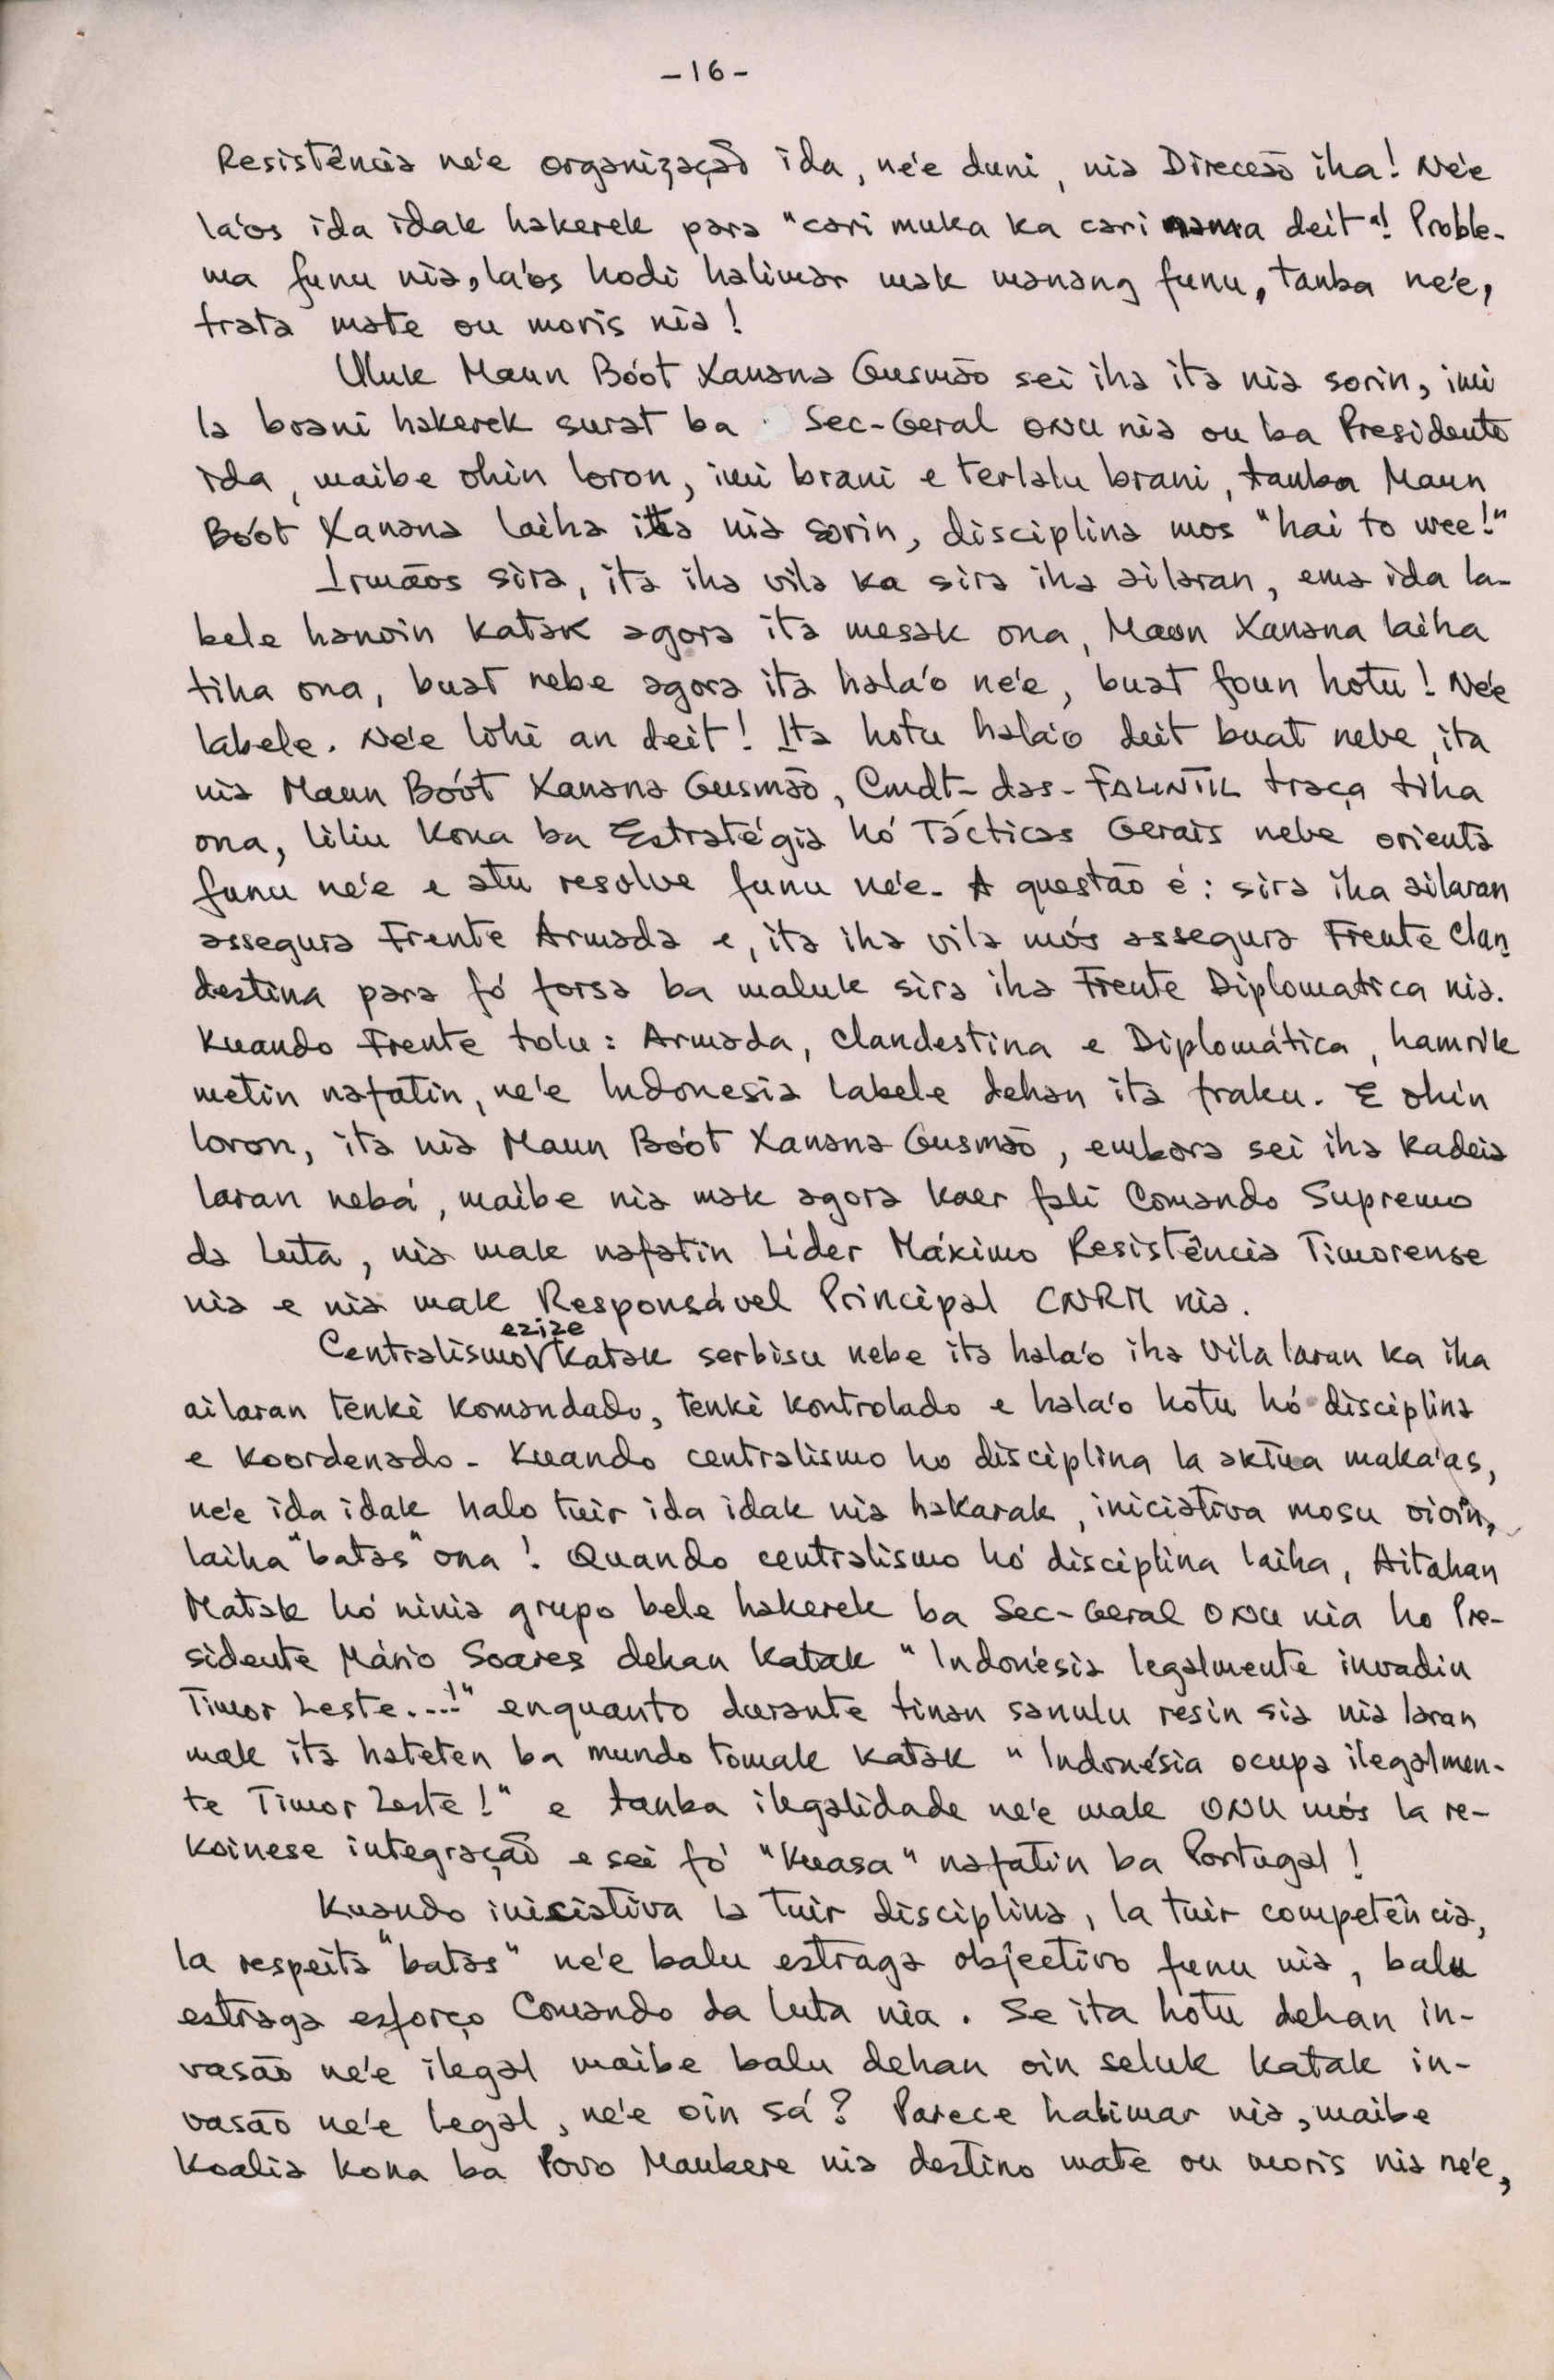 -16-
Resistência ne'e organização ida, ne'e duni, nia Direcção iha! Ne'e
la'os ida idak hakerek para "cari muka ka cari nama deit"! Proble-
ma funu nia, la'os hodi halimar mak manang funu, tanba ne'e,
trata mate ou moris nia!
Uluk Maun Bo'ot Xanana Gusmão sei iha ita nia sorin, imi
la brani hakerek surat ba Sec-Geral ONU nia ou ba Presidente
ida, maibe ohin loron, imi brani e terlalu brani, tanba Maun
Bo'ot Xanana laiha ita nia sorin, disciplina mos "hai to wee!"
Irmãos sira, ita iha vila ka sira iha ailaran, ema ida la-
bele hanoin katak agora ita mesak ona, Maun Xanana laiha
tiha ona, buat nebe agora ita hala'o ne'e, buat foun hotu! Ne'e
labele. Ne'e lohi an deit! Ita hotu hala'o deit buat nebe, ita
nia Maun Bo'ot Xanana Gusmão, Cmdt-das-FALINTIL traça tiha
ona, liliu kona ba Estratégia hó Tácticas Gerais nebe orienta
funu ne'e e atu resolve funu ne'e. A questão é: sira iha ailaran
assegura Frente Armada e, ita iha vila mós assegura Frente Clan
destina para fó forsa ba maluk sira iha Frente Diplomatica nia.
Kuando Frente tolu: Armada, Clandestina e Diplomática, hamrik
metin nafatin, ne'e Indonesia labele dehan ita fraku. E ohin
loron, ita nia Maun Bo'ot Xanana Gusmão, embora sei iha kadeia
laran nebá, maibe nia mak agora kaer fali Comando Supremo
da Luta, nia mak nafatin Líder Máximo Resistência Timorense
nia e nia mak Responsável Principal CNRM nia.
ezize
Centralismo V katak serbisu nebe ita hala'o iha Vila laran ka iha
ailaran tenki komandado, tenki kontrolado e hala'o hotu hó disciplina
e koordenado. Kuando centralismo ho disciplina la aktua maka'as,
ne'e ida idak halo tuir ida idak nia hakarak, iniciativa mosu oioin,
laiha "batas" ona! Quando centralismo hó disciplina laiha, Aitahan
Matak hó ninia grupo bele hakerek ba Sec-Geral ONU nia ho Pre-
sidente Mário Soares dehan katak "Indonésia legalmente invadiu
Timor Leste...!" enquanto durante tinan sanulu resin sia nia laran
mak ita hateten ba mundo tomak katak "Indonésia ocupa ilegalmen-
te Timor Leste!" e tanba ilegalidade ne'e mak ONU mós la re-
koinese integração e sei fó "kuasa" nafatin ba Portugal!
Kuando iniciativa la tuir disciplina, la tuir competência,
la respeita "batas" ne'e balu estraga objectivo funu nia, balu
estraga esforço Comando da Luta nia. Se ita hotu dehan in-
vasão ne'e ilegal maibe balu dehan oin seluk katak in-
vasão ne'e legal, ne'e oin sá? Parece halimar nia, maibe
Koalia kona ba Povo Maubere nia destino mate ou moris nia ne'e,